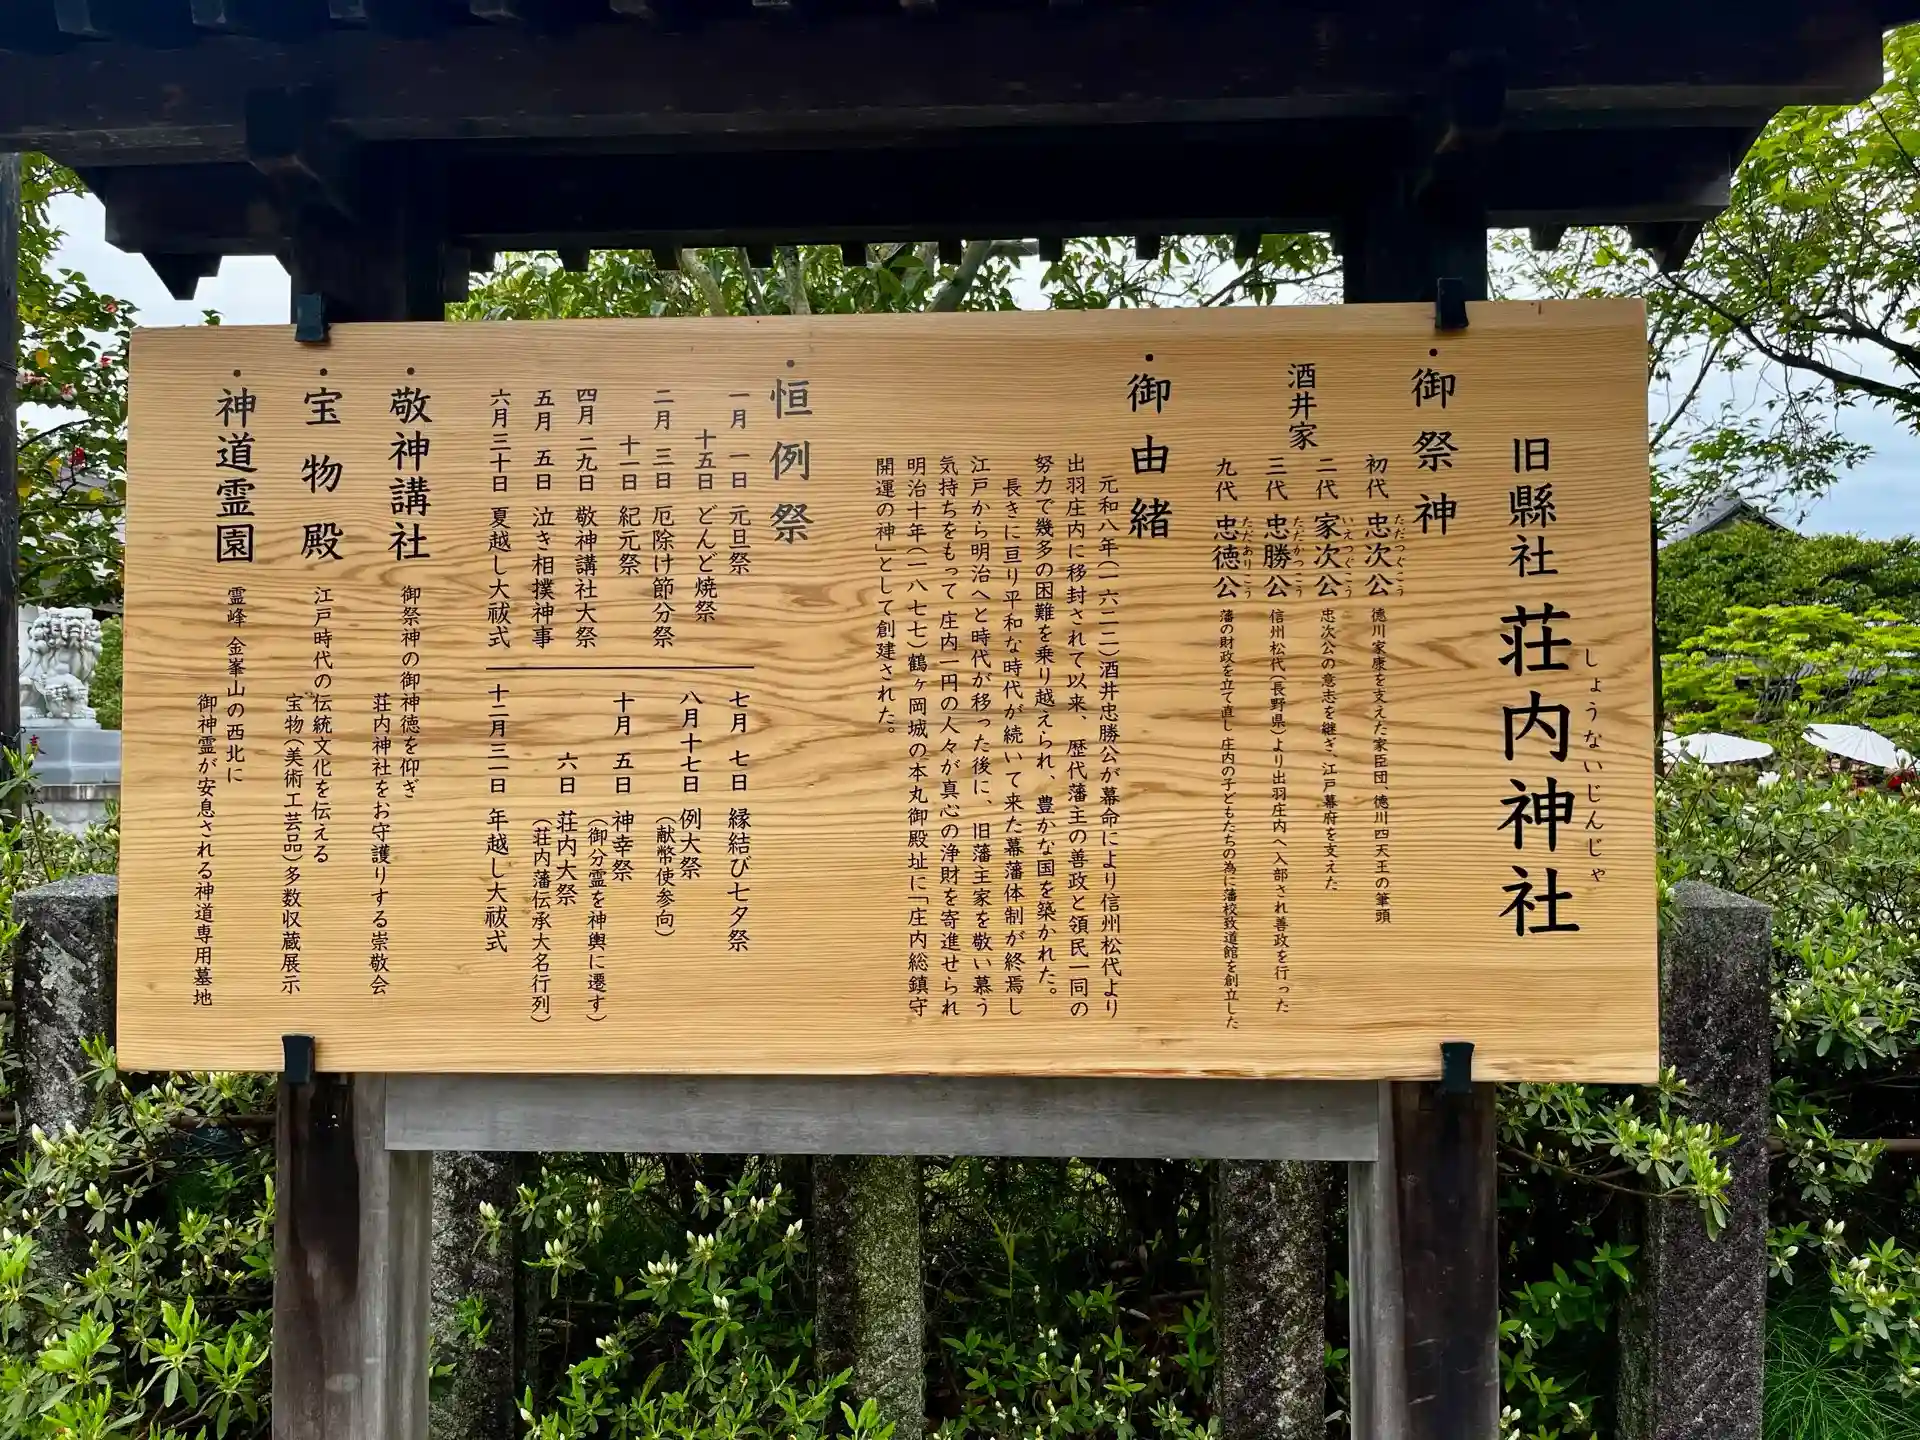 旧縣社 荘内神社
しょうないじんじゃ
・御祭神
酒井家
初代 忠次公 徳川家康を支えた家臣団、徳川四天王の筆頭
ただつぐこう
二代 家次公 忠次公の意志を継ぎ、江戸幕府を支えた
いえつぐこう
三代 忠勝公 信州松代(長野県)より出羽庄内へ入部され善政を行った
ただかつこう
九代 忠徳公 藩の財政を立て直し 庄内の子どもたちの為に藩校致道館を創立した
ただありこう
・御由緒
元和八年(一六二二)酒井忠勝公が幕命により信州松代より
出羽庄内に移封されて以来、歴代藩主の善政と領民一同の
努力で幾多の困難を乗り越えられ、豊かな国を築かれた。
長きに亘り平和な時代が続いて来た幕藩体制が終焉し
江戸から明治へと時代が移った後に、旧藩主家を敬い慕う
気持ちをもって 庄内一円の人々が真心の浄財を寄進せられ
明治十年(一八七七)鶴ヶ岡城の本丸御殿址に「庄内総鎮守
開運の神」として創建された。
・恒例祭
一月 一日 元旦祭
十五日 どんど焼祭
二月 三日 厄除け節分祭
十一日 紀元祭
四月 二九日 敬神講社大祭
五月 五日 泣き相撲神事
六月 三十日 夏越し大祓式
七月 七日 縁結び七夕祭
八月 十七日 例大祭
(献幣使参向)
十月 五日 神幸祭
(御分霊を神輿に遷す)
六日 荘内大祭
(荘内藩伝承大名行列)
十二月 三一日 年越し大祓式
・敬神講社 御祭神の御神徳を仰ぎ
荘内神社をお守護りする崇敬会
・宝物殿 江戸時代の伝統文化を伝える
宝物(美術工芸品)多数収蔵展示
・神道霊園 霊峰 金峯山の西北に
御神霊が安息される神道専用墓地